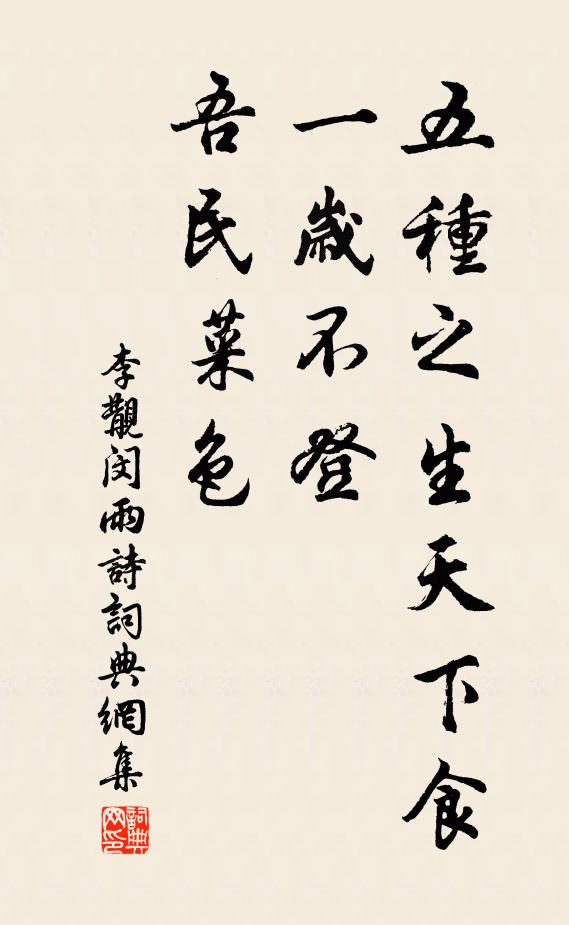 五種之生天下食
一歲不登
吾民菜色
李覯閔雨詩詞典網集
詞典网印